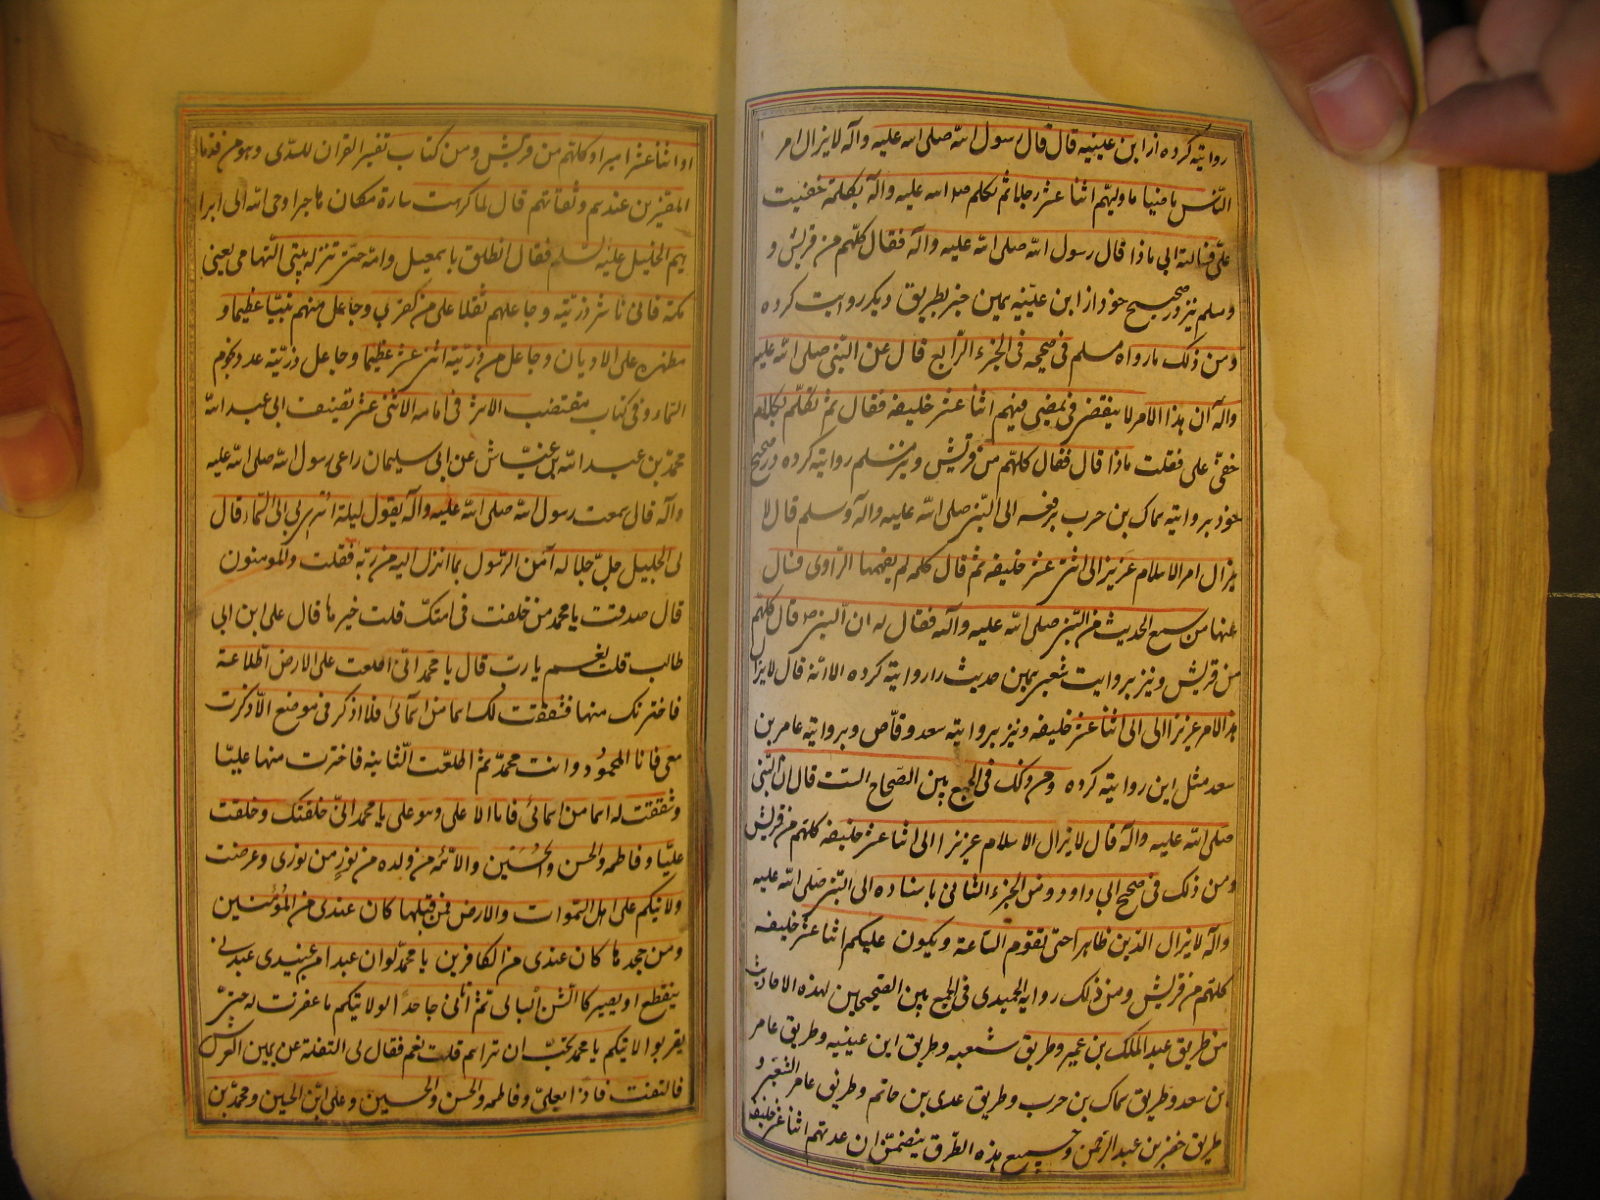 روایته کرده از ابن عیینیه قال قال رسول الله صلی الله علیه وآله لا یزال امر
النّاس ماضیا ما ولیهم اثنا عشر رجلا ثم تکلم صلی الله علیه وآله بکلمة خفیت
علیّ فسالت ابی ماذا قال رسول الله صلی الله علیه وآله فقال کلّهم من قریش و
ومسلم نیز در صحیح خود از ابن عیّینه بمین خبر بطریق دیگر روایت کرده
ومن ذلک ما رواه مسلم فی صحیحه فی الجزء الرّابع قال عن النّبی صلی الله علیه
وآله ان هذا الامر لا ینقضی حتی یمضی فیهم اثنا عشر خلیفه فقال ثم تکلّم بکلام
خفیّ علی فقلت ماذا قال فقال کلّهم من قریش و نیز مسلم روایته کرده در صحیح
خود بروایته سماک بن حرب برفعه الی النّبی صلی الله علیه وآله وسلم قال لا
یزال امر الاسلام عزیزا الی اثنی عشر خلیفه ثم قال کلمه لم یفهمها الرّاوی فسال
عنها من سمع الحدیث من النّبی صلی الله علیه وآله فقال له ان النبی ص قال کلهم
من قریش ونیز بروایت شعبی همین حدیث را روایته کرده الا انّه قال لا یزال
هذا الامر عزیزا الی الی اثنا عشر خلیفه ونیز بروایته سعد وقّاص وبروایته عامر بن
سعد مثل این روایته کرده ومن ذلک فی الجمع بین الصّحاح الستّ قال انّ النّبی
صلی الله علیه وآله قال لا یزال الاسلام عزیزا الی اثنا عشر خلیفه کلهم من قریش
ومن ذلک فی صحیح ابی داود ومن الجزء الثانی باسناده الی النّبی صلی الله علیه
وآله لا یزال الدّین ظاهرا حتی تقوم السّاعة ویکون علیکم اثنا عشر خلیفه
کلهم من قریش ومن ذلک روایه الحمیدی فی الجمع بین الصّحیحین لهذه الاحادیث
من طریق عبد الملک بن عمیر وطریق شعبه وطریق ابن عینیه وطریق عامر
بن سعد وطریق سماک بن حرب وطریق عدی بن حاتم وطریق عامر الشعبی و
طریق حضر بن عبد الرّحمن وجمیع هذه الطّرق یتضمّن ان عدتهم اثنا عشر خلیفه
او اثنا عشر امیرا وکلهم من قریش ومن کتاب تفسیر القران للسدّی وهو من قدماء
المفسّرین عندهم وثقاتهم قال لما کرهت سارة مکان هاجر اوحی الله الی ابرا
هیم الخلیل علیه السلم فقال انطلق باسمعیل وامّه حتی تنزله بیتی التّهامی یعنی
مکة فانی ناشر ذرّیته وجاعلهم ثقلا علی من کفر بی وجاعل منهم نبیّا عظیما و
مظهره علی الادیان وجاعل من ذرّیته اثنی عشر عظیما وجاعل ذرّیته عدد نجوم
السّماء وفی کتاب مقتضب الاثر فی امامه الاثنی عشر تصنیف ابی عبد الله
محمّد بن عبد الله بن عیّاش عن ابی سلیمان راعی رسول الله صلی الله علیه
وآله قال سمعت رسول الله صلی الله علیه وآله یقول لیلة اسری بی الی السّماء قال
لی الجلیل جلّ جلاله آمن الرّسول بما انزل الیه من ربّه فقلت والمومنون
قال صدقت یا محمد من خلفت فی امتک قلت خیرها قال علی ابن ابی
طالب قلت نعم یا ربّ قال یا محمّد انّی اطلعت علی الارض اطّلاعة
فاخترتک منها فشققت لک اسما من اسمآئی فلا اذکر فی موضع الّا ذکرت
معی فانا المحمُود وانت محمّد ثمّ اطلعت الثّانیه فاخترت منها علیّا
وشققت له اسما من اسمائی فانا الاعلی وهو علی یا محمد انّی خلقتک وخلقت
علیّا وفاطمه والحسن والحُسَین والائمّه من ولده من نورٍ من نوری وعرضت
ولایتکم علی اهل السّموات والارض فمن قبلها کان عندی من المؤمنین
ومن جحدها کان عندی من الکافرین یا محمّد لو ان عبدا من عبیدی عبدنی
ینقطع او یصیر کالشّن البالی ثمّ اتانی جاحدًا لولایتکم ما غفرت له حتیّ
یقر بولایتکم یا محمد تحبّ ان تراهم قلت نعم فقال لی التفت عن یمین العرش
فالتفت فاذا بعلیّ وفاطمه والحسن والحسین وعلی ابن الحسین ومحمّد بن